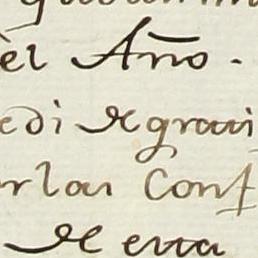 èl Año.
edi de gravi
rlas Conf
de esta